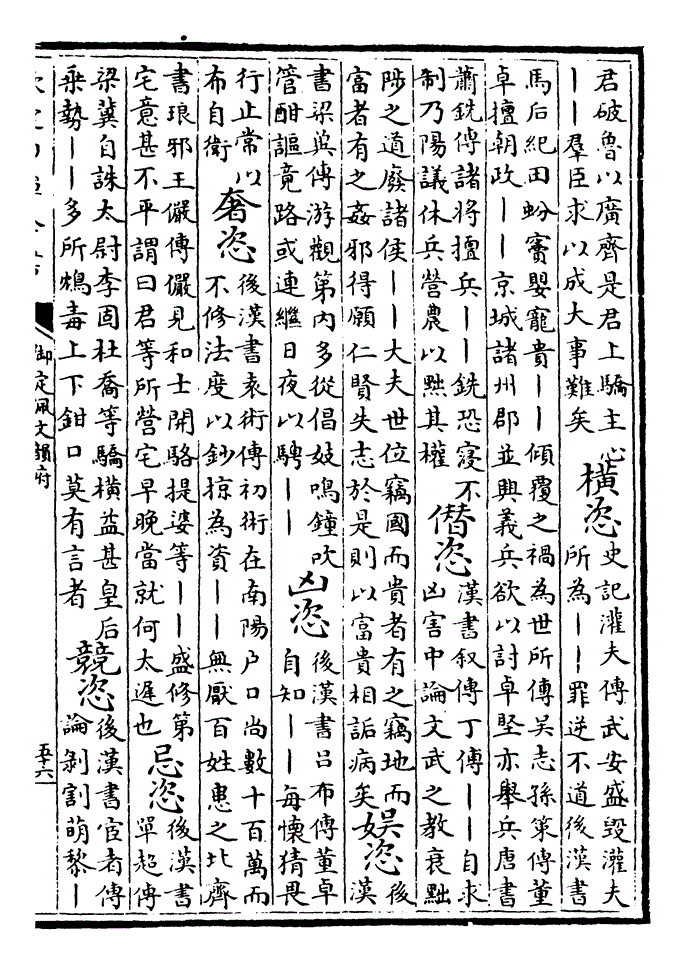 君破魯以廣齊是君上驕主心
——羣臣求以成大事難矣
橫恣
史記灌夫傳武安盛毀灌夫
所為——罪逆不道後漢書
馬后紀田蚡竇嬰寵貴——傾覆之禍為世所傳吳志孫策傳董
卓擅朝政——京城諸州郡並興義兵欲以討卓堅亦舉兵唐書
蕭銑傳諸將擅兵——銑恐寖不
制乃陽議休兵營農以黜其權
僭恣
漢書叙傳丁傳——自求
凶害中論文武之教衰黜
陟之道廢諸侯——大夫世位竊國而貴者有之竊地而
富者有之姦邪得願仁賢失志於是則以富貴相詬病矣
娛恣
後
漢
書梁冀傳游觀第內多從倡妓鳴鐘吹
管酣謳竟路或連繼日夜以騁——
凶恣
後漢書呂布傳董卓
自知——每懷猜畏
行止常以
布自衛
奢恣
後漢書袁術傳初術在南陽戶口尚數十百萬而
不修法度以鈔掠為資——無厭百姓患之北齊
書琅邪王儼傳儼見和士開駱提婆等——盛修第
宅意甚不平謂曰君等所營宅早晚當就何太遲也
忌恣
後漢書
單超傳
梁冀自誅太尉李固杜喬等驕橫益甚皇后
乘勢——多所鴆毒上下鉗口莫有言者
競恣
後漢書宦者傳
論剝割萌黎—
御定佩文韻府
五十六